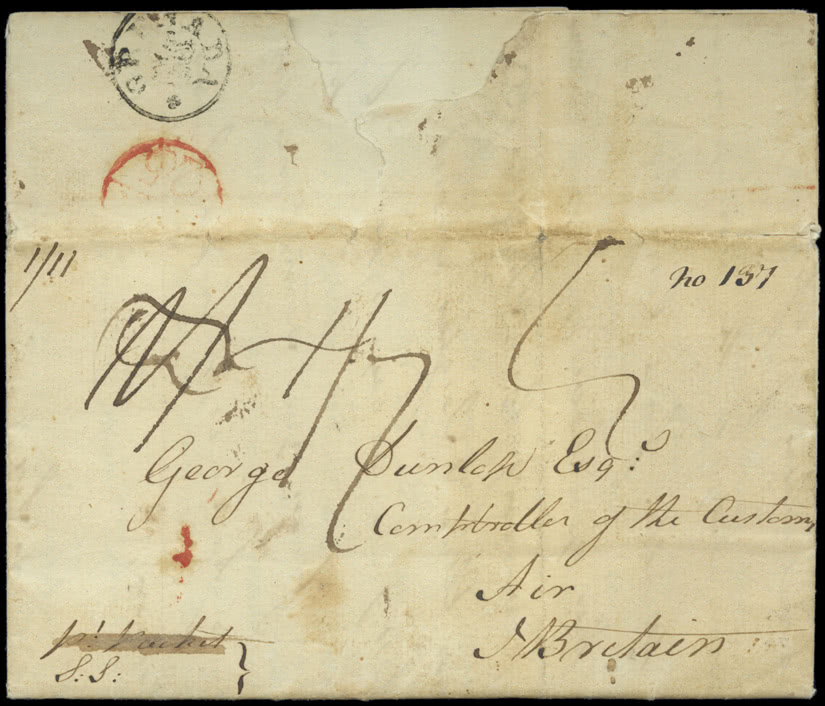 1/11
no 137
George Dunlop Esqr:
Comptroller of the Customs
Air
N Britain
pr. Packet
S: S: